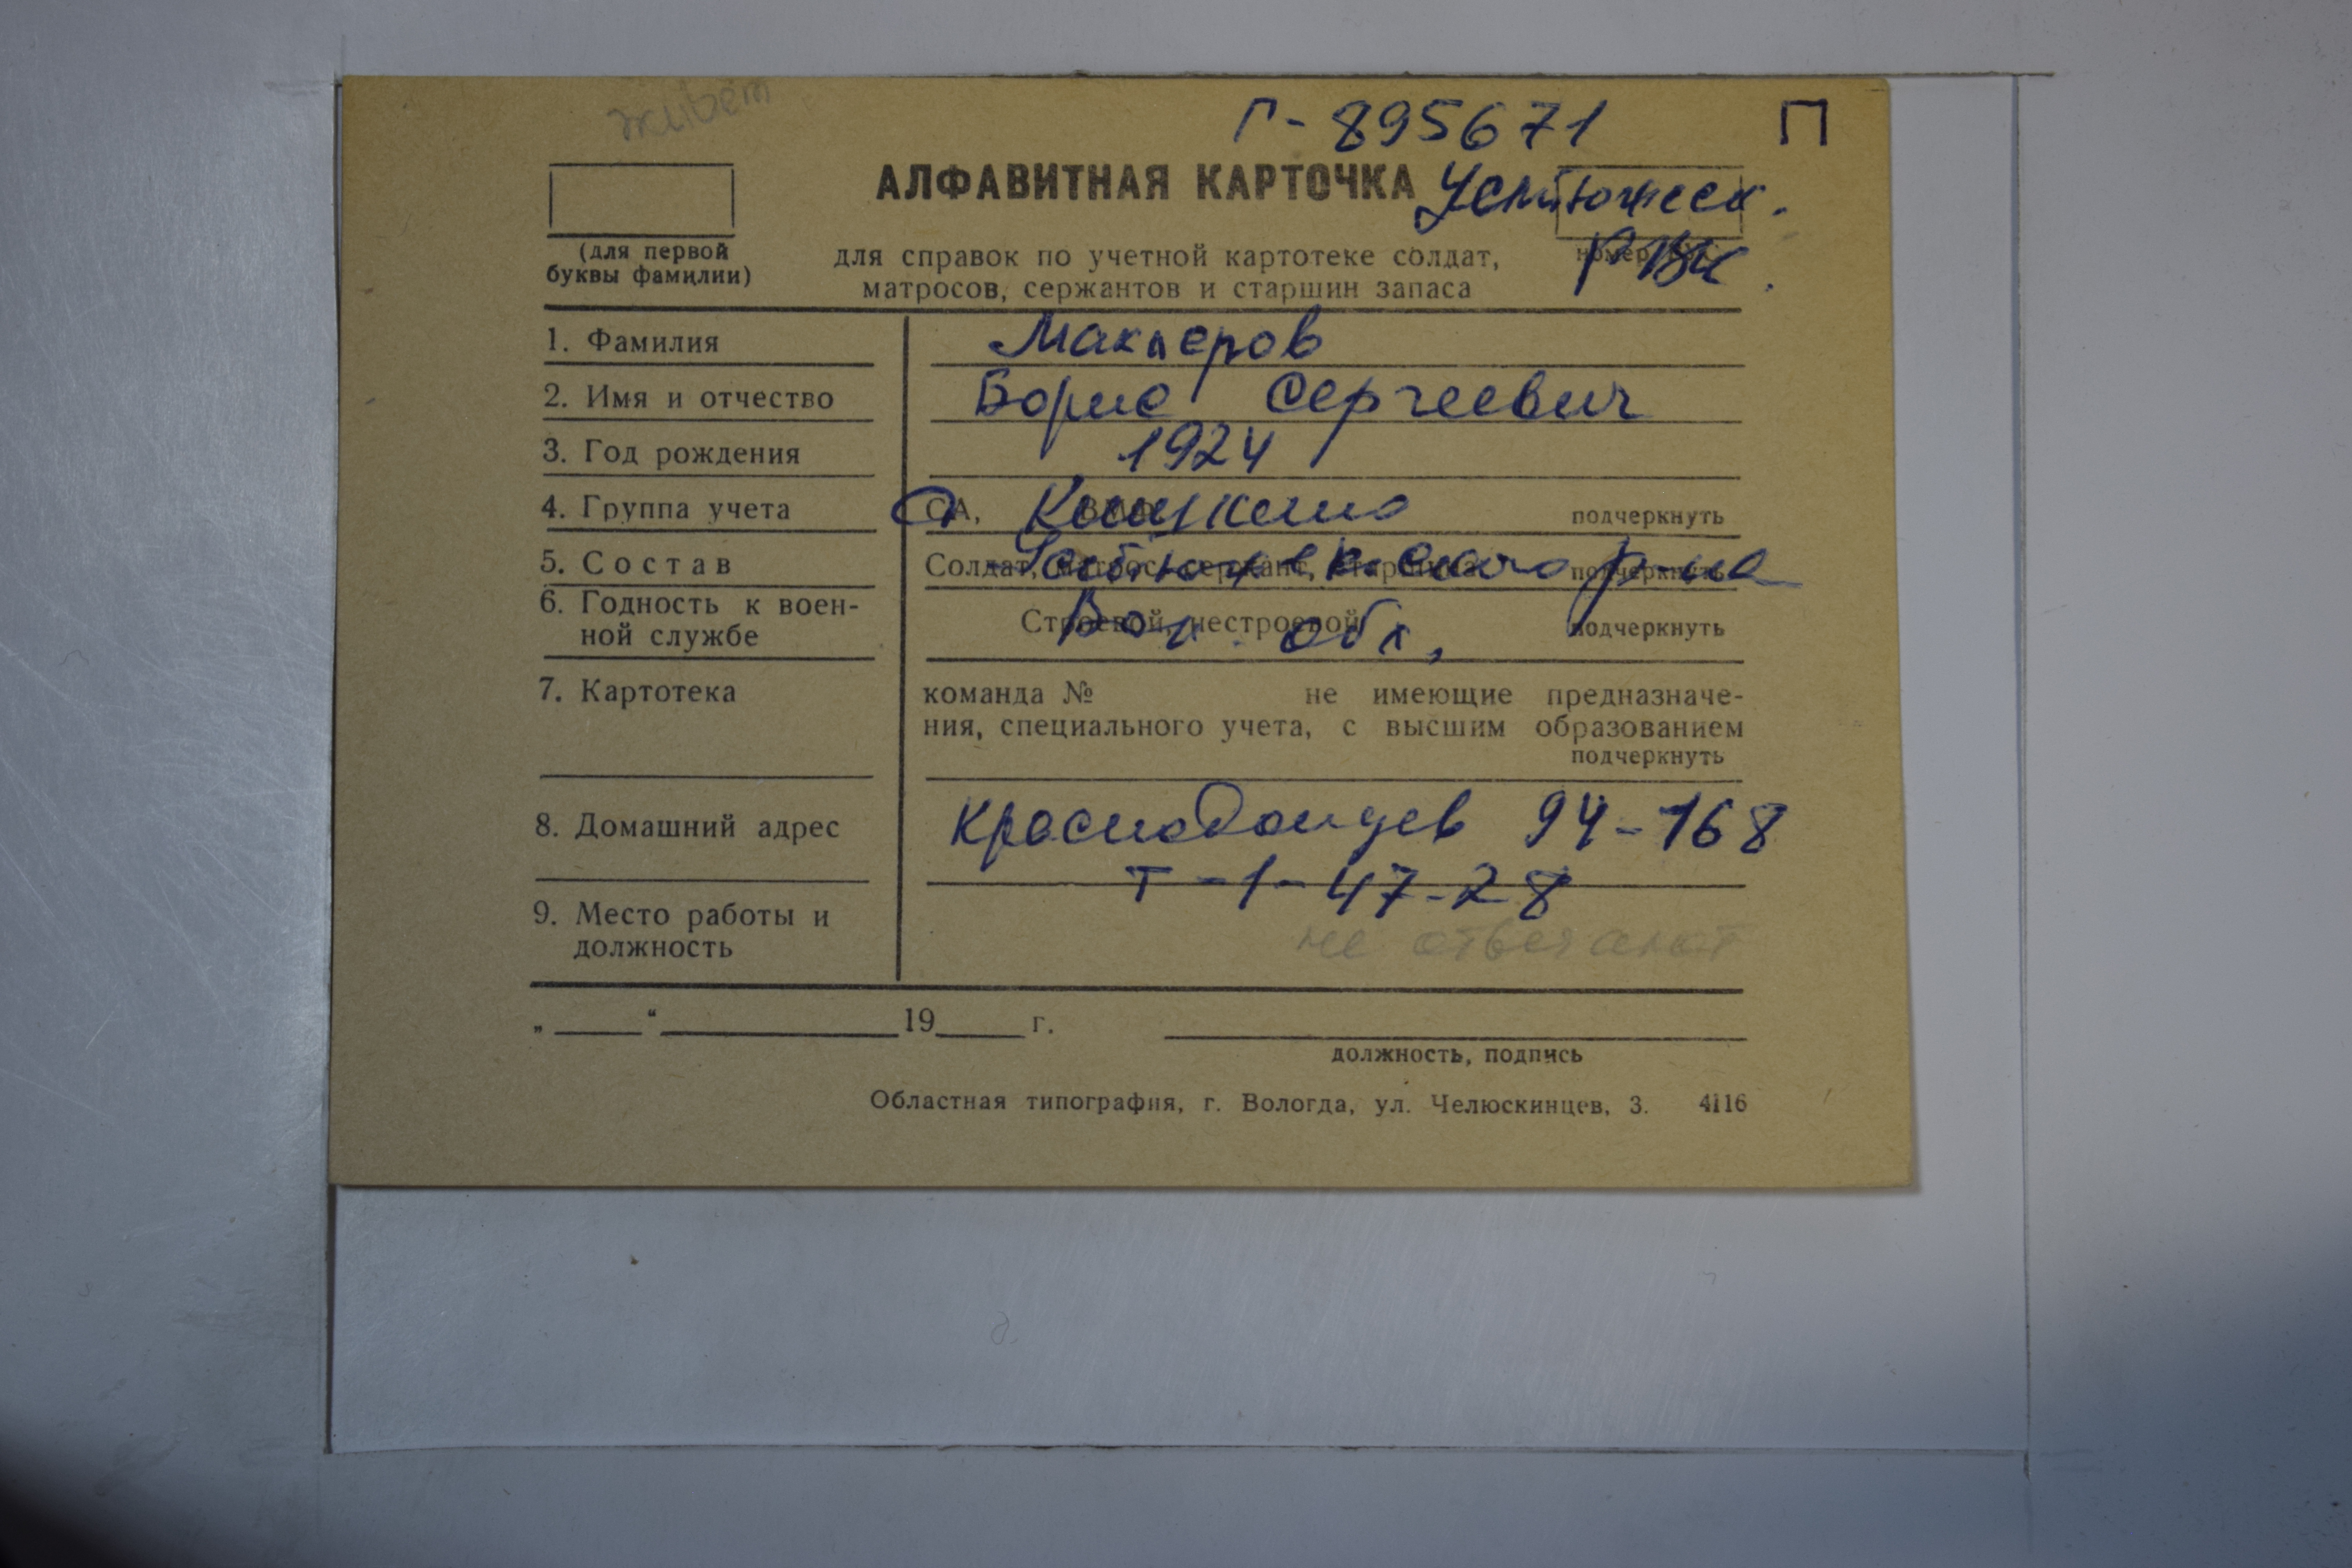 живёт
Г-895671 П
АЛФАВИТНАЯ КАРТОЧКА Устюженск.
РВК.
(для первой
буквы фамилии)
для справок по учетной картотеке солдат,
матросов, сержантов и старшин запаса
номер
1. Фамилия Макперов
2. Имя и отчество Борис Сергеевич
3. Год рождения 1924
4. Группа учета СА, подчеркнуть
5. Состав Солдат, матрос, сержант, старшина подчеркнуть
Устюженского р-на
6. Годность к воен-
ной службе Строевой, нестроевой подчеркнуть
Вол. обл.
7. Картотека команда № не имеющие предназначе-
ния, специального учета, с высшим образованием
подчеркнуть
8. Домашний адрес Краснодонцев 94-168
Т-1-47-28
9. Место работы и
должность
не отвечают
„ “ 19 г.
должность, подпись
Областная типография, г. Вологда, ул. Челюскинцев, 3. 4116